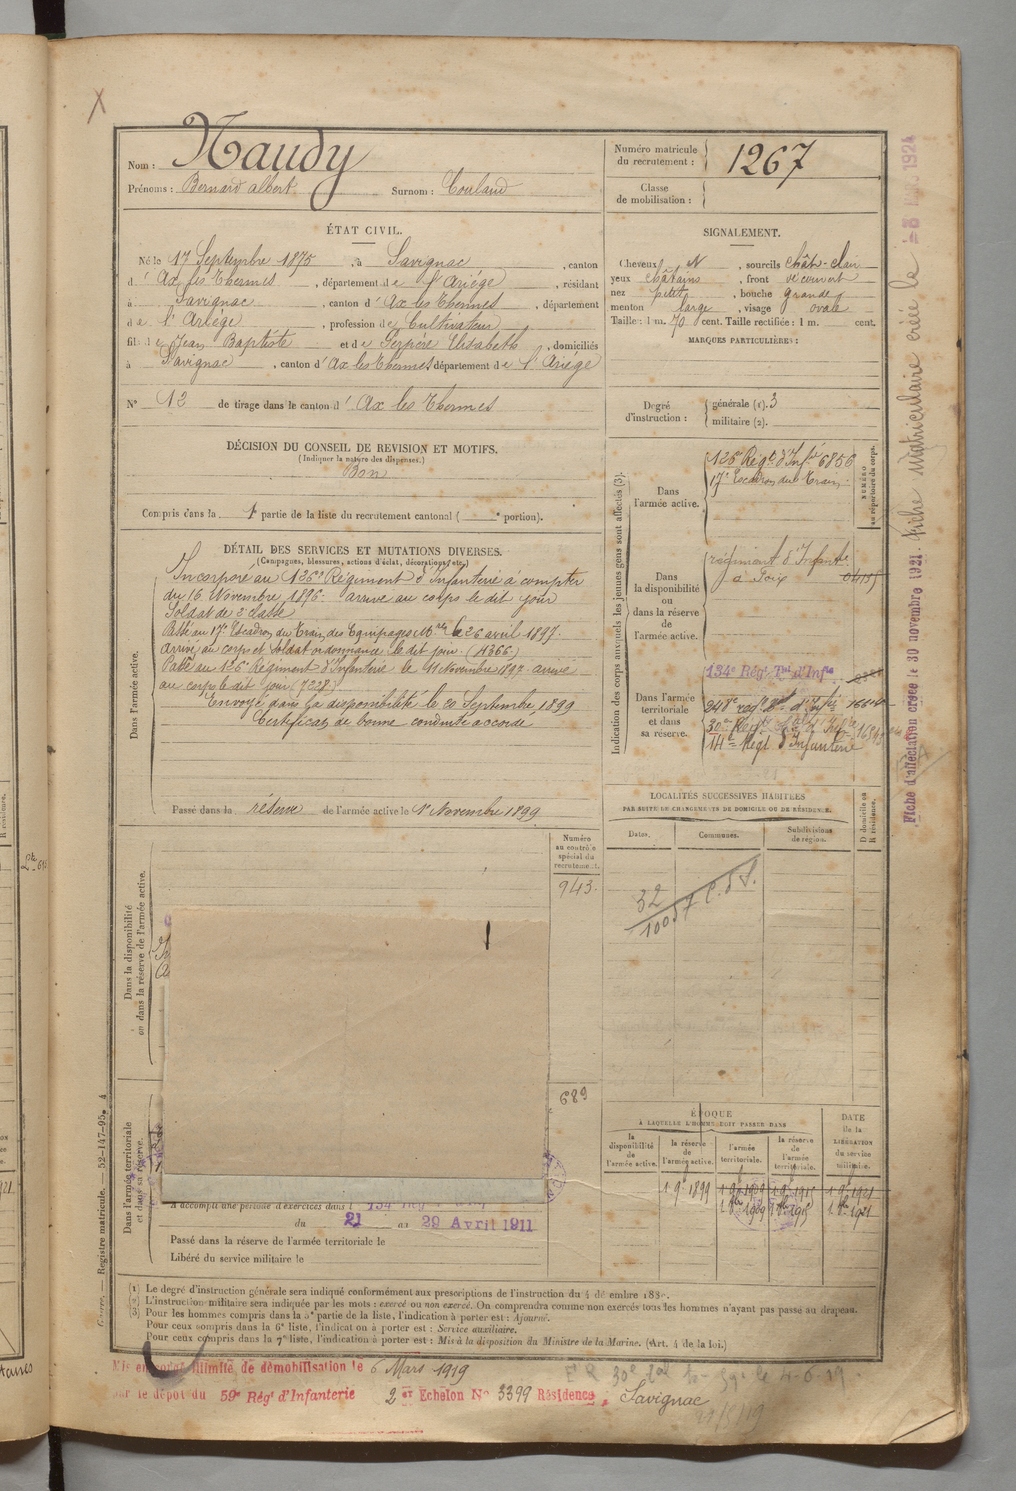 Nom : Naudy
Prénoms : Bernard Albert Surnom : Couland
Numéro matricule du recrutement : 1267
Classe de mobilisation :
ÉTAT CIVIL.
Né le 17 Septembre 1875, à Savignac, canton
d' Ax les Thermes, département de l'Ariége, résidant
à Savignac, canton d' Ax les Thermes, département
de l'Ariége, profession de Cultivateur
fils de Jean Baptiste et de Serpéré Elisabeth, domiciliés
à Savignac, canton d' Ax les Thermes département de l'Ariége
N° 12 de tirage dans le canton d' Ax les Thermes
DÉCISION DU CONSEIL DE REVISION ET MOTIFS.
(Indiquer la nature des dispenses.)
Bon
Compris dans la 1e partie de la liste du recrutement cantonal ( e portion).
SIGNALEMENT.
Cheveux N, sourcils châts-clair
yeux châtains, front découvert
nez petit, bouche grande
menton large, visage ovale
Taille : 1 m. 70 cent. Taille rectifiée : 1 m. cent.
MARQUES PARTICULIÈRES :
Degré d'instruction : générale (1). 3
militaire (2).
Indication des corps auxquels les jeunes gens sont affectés (3).
NUMÉRO au répertoire du corps.
Dans l'armée active.
126e Régt d'Infie 6856
17e Escadron du Train
Dans la disponibilité ou dans la réserve de l'armée active.
régiment d'Infantie
à Foix
Dans l'armée territoriale et dans sa réserve.
134e Régt Tal d'Infie
14e Régt d'Infanterie
DÉTAIL DES SERVICES ET MUTATIONS DIVERSES.
(Campagnes, blessures, actions d'éclat, décorations, etc.)
Dans l'armée active.
Incorporé au 126e Régiment d'Infanterie à compter
du 16 Novembre 1896. arrivé au corps le dit jour
Soldat de 2e classe
Passé au 17e Escadron du Train des Equipages Mres le 26 avril 1897.
Arrivé au corps et Soldat ordonnance le dit jour. (4366)
Passé au 126e Régiment d'Infanterie le 11 Novembre 1897 arrivé
au corps le dit jour (7228)
Envoyé dans la disponibilité le 20 Septembre 1899
Certificat de bonne conduite accordé
Passé dans la réserve de l'armée active le 1er Novembre 1899
Dans la disponibilité ou dans la réserve de l'armée active.
Numéro au contrôle spécial du recrutement.
943.
689
LOCALITÉS SUCCESSIVES HABITÉES
PAR SUITE DE CHANGEMENTS DE DOMICILE OU DE RÉSIDENCE.
Dates. Communes. Subdivisions de région. D domicile ou R résidence.
32
ÉPOQUE
À LAQUELLE L'HOMME DOIT PASSER DANS
la disponibilité de l'armée active. la réserve de l'armée active. l'armée territoriale. la réserve de l'armée territoriale. DATE de la LIBÉRATION du service militaire.
Dans l'armée territoriale et dans sa réserve.
A accompli une période d'exercices dans l
du 21 au 29 Avril 1911
Passé dans la réserve de l'armée territoriale le
Libéré du service militaire le
(1) Le degré d'instruction générale sera indiqué conformément aux prescriptions de l'instruction du 4 décembre 1889.
(2) L'instruction militaire sera indiquée par les mots : exercé ou non exercé. On comprendra comme non exercés tous les hommes n'ayant pas passé au drapeau.
(3) Pour les hommes compris dans la 5e partie de la liste, l'indication à porter est : Ajourné.
Pour ceux compris dans la 6e liste, l'indication à porter est : Service auxiliaire.
Pour ceux compris dans la 7e liste, l'indication à porter est : Mis à la disposition du Ministre de la Marine. (Art. 4 de la loi.)
Mis en congé illimité de démobilisation le 6 Mars 1919
sur le dépôt du 59e Régt d'Infanterie 2e Echelon No 3399 Résidence : Savignac
Fiche d'affectation créée le 30 novembre 1921. Fiche matriculaire créée le
Registre matricule. — 52-147-95. 4